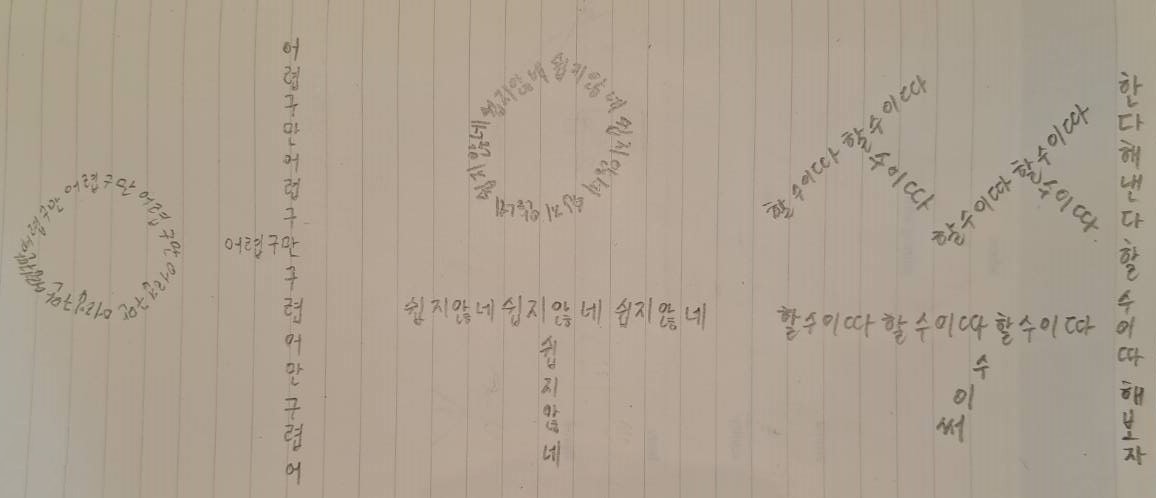 어렵구만 어렵구만 어렵구만 어렵구만 어렵구만
어
렵
구
만
어
렵
구
어렵구만
구
렵
어
만
구
렵
어
쉽지않네 쉽지않네 쉽지않네 쉽지않네 쉽지않네
쉽지않네 쉽지않네 쉽지않네
쉽
지
않
네
할수이따 할수이따
수이따
할수이따 할수이따
수이따
할수이따 할수이따 할수이따
수
이
써
한
다
해
낸
다
할
수
이
따
해
보
자